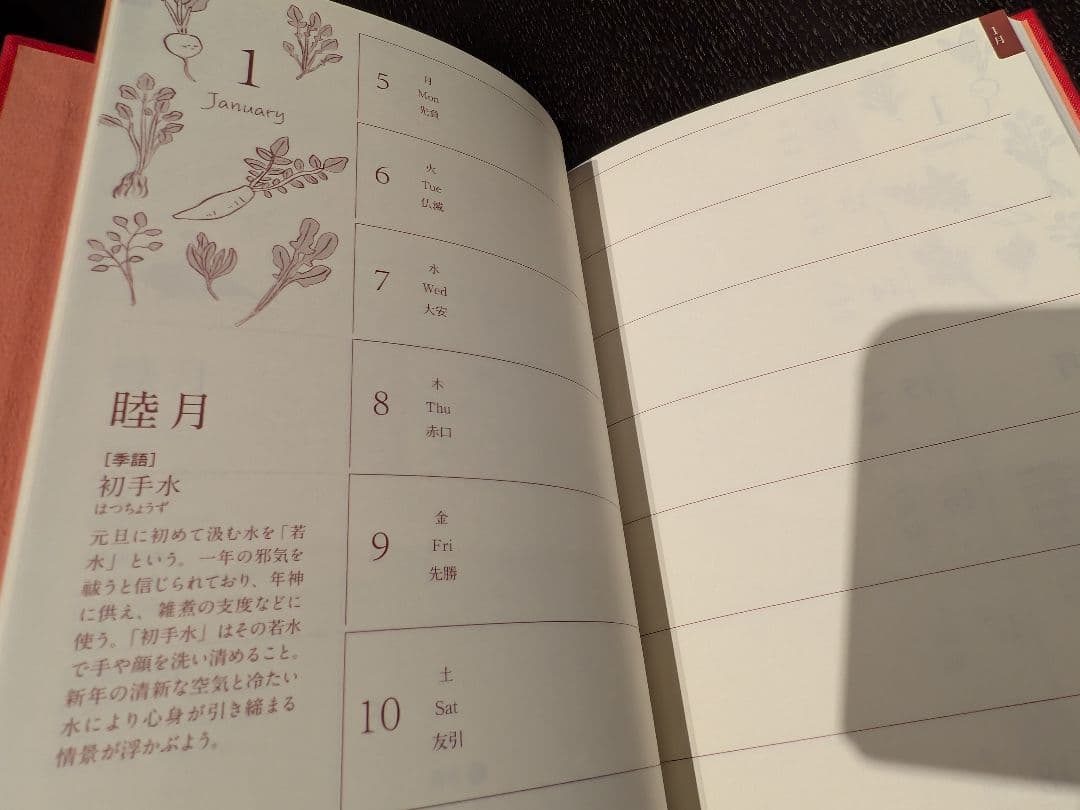 1
January
睦月
［季語］
初手水
はつちょうず
元旦に初めて汲む水を「若
水」という。一年の邪気を
祓うと信じられており、年神
に供え、雑煮の支度などに
使う。「初手水」はその若水
で手や顔を洗い清めること。
新年の清新な空気と冷たい
水により心身が引き締まる
情景が浮かぶよう。
5
月
Mon
先負
6
火
Tue
仏滅
7
水
Wed
大安
8
木
Thu
赤口
9
金
Fri
先勝
10
土
Sat
友引
1月